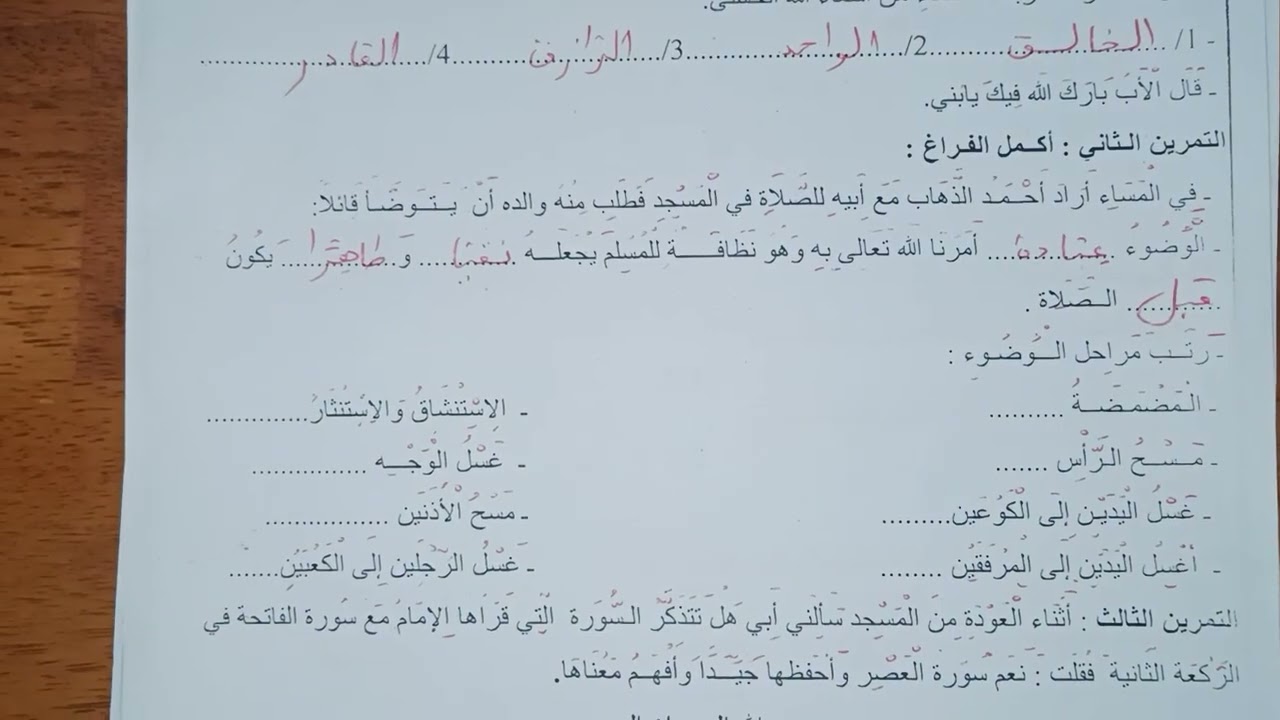 - 1/ الخالق 2/ الواحد 3/ الرازق 4/ القادر
- قَالَ الْأَبُ بَارَكَ الله فِيكَ يابني.
التمرين الثاني : أكمل الفراغ :
- فِي الْمَسَاءِ أَرَادَ أَحْمَدُ الذَّهَاب مَعَ أَبِيهِ لِلصَّلَاةِ فِي الْمَسْجِدِ فَطَلَبَ مِنْهُ والده أَنْ يَتَوَضَّأَ قَائلاً:
- الْوُضُوءُ عبادة أمَرنَا الله تَعَالى بِهِ وَهُوَ نَظَافَةٌ لِلْمُسْلِمِ يَجْعَلُهُ نقيا وَ طاهرا يَكُونُ
قبل الصَّلَاة .
- رَتِّبْ مَرَاحِل الْوُضُوءِ :
- الْمَضْمَضَةُ .......... - الِاسْتِنْشَاقُ وَالِاسْتِنْثَارُ..............
- مَسْحُ الرَّأْسِ ....... - غَسْلُ الْوَجْهِ ................
- غَسْلُ الْيَدَيْنِ إِلَى الْكُوعَين......... - مَسْحُ الْأُذُنَيْنِ .................
- أغْسِلُ الْيَدَيْنِ إِلَى الْمِرْفَقَيْنِ ........ - غَسْلُ الرِّجْلَيْنِ إِلَى الْكَعْبَيْنِ.......
التمرين الثالث : أَثْنَاء الْعَوْدَةِ مِنَ الْمَسْجِد سَأَلَنِي أَبِي هَلْ تَتَذَكَّرُ السُّورَةَ الَّتِي قَرَأَهَا الإِمَامُ مَعَ سُورَة الفاتحة في
الرَّكْعَة الثَّانِيَة فَقُلْتُ : نَعَم سُورَة الْعَصْرِ وَأَحْفَظُهَا جَيِّداً وَأَفْهَمُ مَعْنَاهَا.